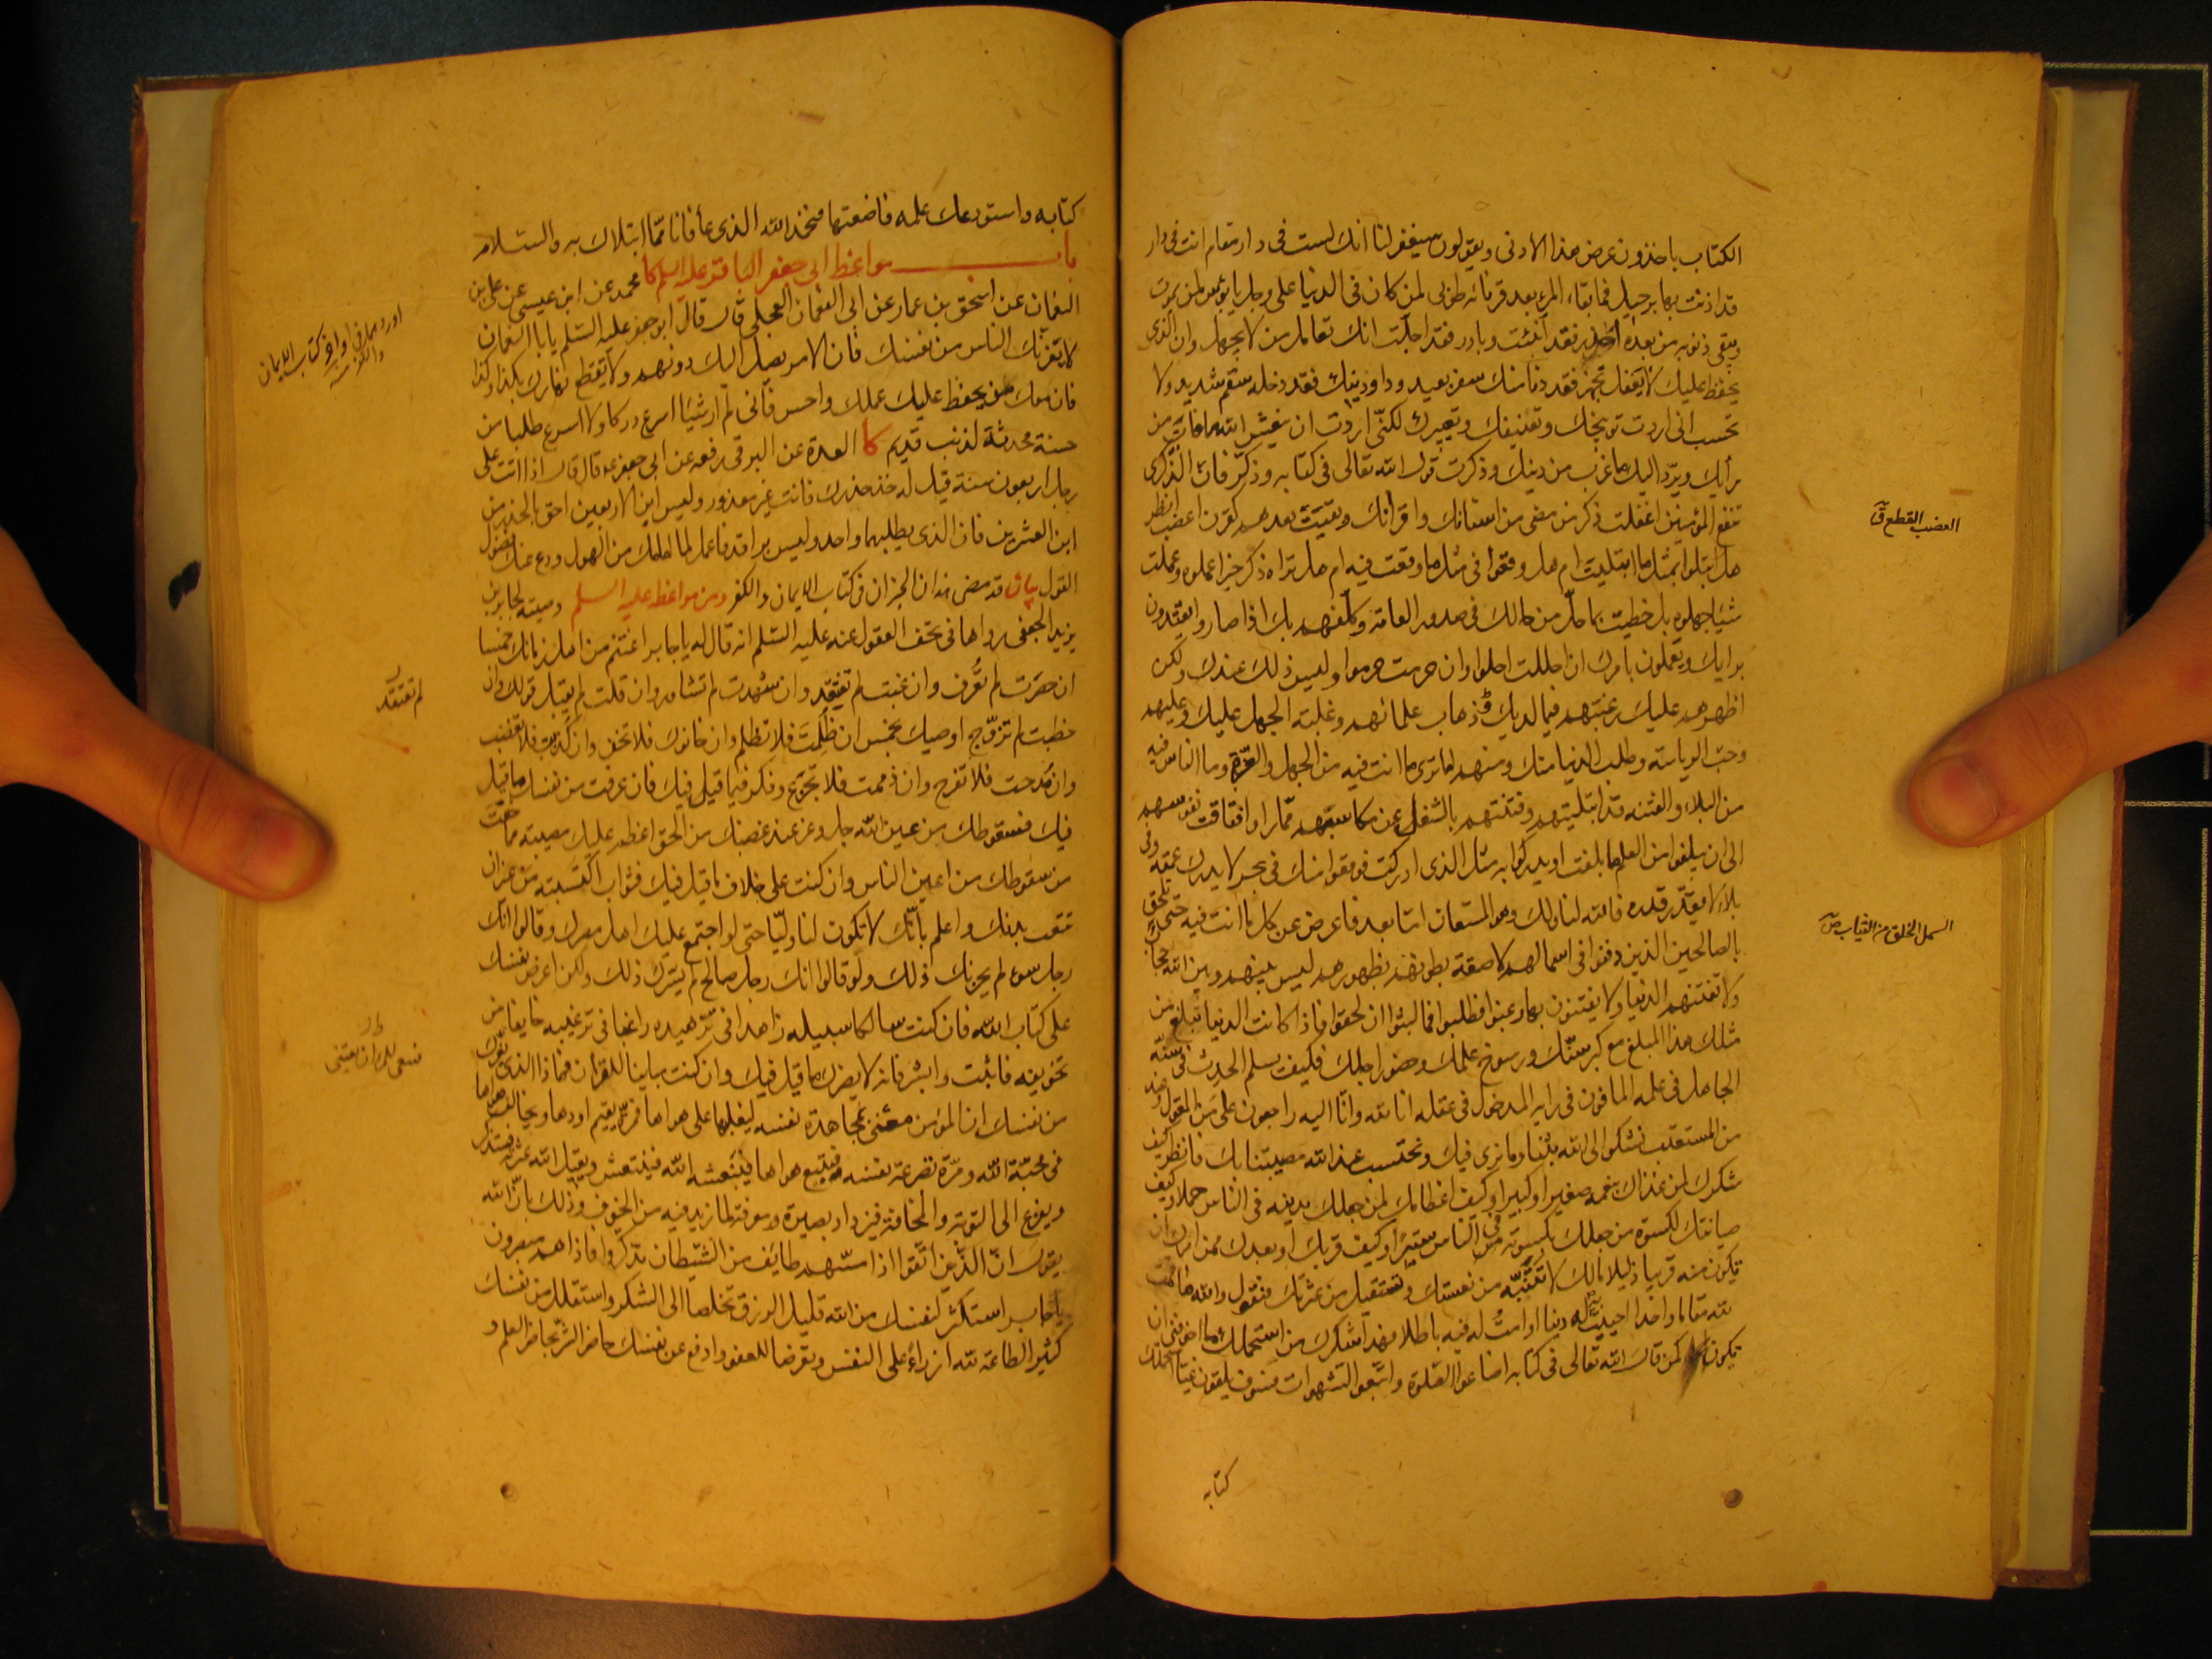 الكتاب ياخذون عرض هذا الادنى ويقولون سيغفر لنا انك لست فى دار مقام انت فى دار
قد اذنت برحيل فما بقاء المرء بعد قرنائه طوبى لمن كان فى الدنيا على وجل يا بؤس لمن يموت
ويبقى ذنوبه من بعده احذر فقد انبئت وبادر فقد اجلت انك تعامل من لا يجهل وان الذى
يحفظ عليك لا يغفل تجهز فقد دنا منك سفر بعيد وداو دينك فقد دخله سقم شديد ولا
تحسب انى اردت توبيخك وتعنيفك وتعييرك لكنى اردت ان ينعش الله ما فات من
رأيك ويرد اليك ما عزب من دينك وذكرت قول الله تعالى فى كتابه وذكر فان الذكرى
تنفع المؤمنين اغفلت ذكر من مضى من اسنانك واقرانك وبقيت بعدهم كقرن اعضب انظر
هل ابتلوا بمثل ما ابتليت ام هل وقعوا فى مثل ما وقعت فيه ام هل تراه ذكر خيرا عملوه وعملت
شيئا جهلوه بل حظيت بما حل من حالك فى صدور العامة وكلفهم بك اذ صاروا يقتدون
برايك ويعملون بامرك ان احللت احلوا وان حرمت حرموا وليس ذلك عندك ولكن
اظهرهم عليك رغبتهم فيما لديك ذهاب علمائهم وغلبة الجهل عليك وعليهم
وحب الرياسة وطلب الدنيا منك ومنهم اما ترى ما انت فيه من الجهل والغرة وما الناس فيه
من البلاء والفتنة قد ابتليتهم وفتنتهم بالشغل عن مكاسبهم مما راوا فتاقت نفوسهم
الى ان يبلغوا من العلم ما بلغت او يدركوا به مثل الذى ادركت فوقعوا منك فى بحر لا يدرك عمقه وفى
بلاء لا يقدر قدره فالله لنا ولك وهو المستعان اما بعد فاعرض عن كل ما انت فيه حتى تلحق
بالصالحين الذين دفنوا فى اسمالهم لاصقة بطونهم بظهورهم ليس بينهم وبين الله حجاب
ولا تفتنهم الدنيا ولا يفتنون بها رغبوا فطلبوا فما لبثوا ان لحقوا فاذا كانت الدنيا تبلغ من
مثلك هذا المبلغ مع كبر سنك ورسوخ علمك وحضور اجلك فكيف يسلم الحدث فى سنه
الجاهل فى علمه المافون فى رايه المدخول فى عقله انا لله وانا اليه راجعون على من المعول وعند
من المستعتب نشكو الى الله بثنا وما نرى فيك ونحتسب عند الله مصيبتنا بك فانظر كيف
شكرك لمن غذاك بنعمه صغيرا وكبيرا وكيف اعظامك لمن جعلك بدينه فى الناس جميلا وكيف
صيانتك لكسوة من جعلك بكسوته فى الناس ستيرا وكيف قربك او بعدك ممن امرك ان
تكون منه قريبا ذليلا مالك لا تنتبه من نعستك وتستقيل من عثرتك فتقول والله ما قمت
لله مقاما واحدا احييت له دينا او امت له فيه باطلا فهذا شكرك من استحملك ما اخوفنى ان
تكون كمن قال الله تعالى فى كتابه اضاعوا الصلوة واتبعوا الشهوات فسوف يلقون غيا استحملك
كتابه
العضب القطع ق
السمل الخلق من الثياب ص
كتابه واستودعك علمه فاضعتها فنحمد الله الذى عافانا مما ابتلاك به والسلام
باب مواعظ ابى جعفر الباقر عليه السلم كا محمد عن ابن عيسى عن على بن
النعمان عن اسحق بن عمار عن ابى النعمان العجلى قال قال ابو جعفر عليه السلم يا با النعمان
لا يغرنك الناس من نفسك فان الامر يصل اليك دونهم ولا تقطع نهارك بكذا وكذا
فان معك من يحفظ عليك عملك واحسن فانى لم ار شيئا اسرع دركا ولا اسرع طلبا من
حسنة محدثة لذنب قديم كا العدة عن البرقى رفعه عن ابى جعفر ع قال قال اذا اتت على
رجل اربعون سنة قيل له خذ حذرك فانت غير معذور وليس ابن الاربعين احق بالحذر من
ابن العشرين فان الذى يطلبهما واحد وليس براقد فاعمل لما امامك من الهول ودع عنك فضول
القول بيان قد مضى هذان الخبران فى كتاب الايمان والكفر ومن مواعظه عليه السلم وصيته لجابر بن
يزيد الجعفى رواها فى تحف العقول عنه عليه السلم انه قال له يا جابر اغتنم من اهل زمانك خمسا
ان حضرت لم تعرف وان غبت لم تفتقد وان شهدت لم تشاور وان قلت لم يقبل قولك وان
خطبت لم تزوج اوصيك بخمس ان ظلمت فلا تظلم وان خانوك فلا تخن وان كذبت فلا تغضب
وان مدحت فلا تفرح وان ذممت فلا تجزع وفكر فيما قيل فيك فان عرفت من نفسك ما قيل
فيك فسقوطك من عين الله جل وعز عند غضبك من الحق اعظم عليك مصيبة مما خفت
من سقوطك من اعين الناس وان كنت على خلاف ما قيل فيك فثواب اكتسبته من غير ان
تتعب بدنك واعلم بانك لا تكون لنا وليا حتى لو اجتمع عليك اهل مصرك وقالوا انك
رجل سوء لم يحزنك ذلك ولو قالوا انك رجل صالح لم يسرك ذلك ولكن اعرض نفسك
على كتاب الله فان كنت سالكا سبيله زاهدا فى تزهيده راغبا فى ترغيبه خايفا من
تخويفه فاثبت وابشر فانه لا يضرك ما قيل فيك وان كنت مباينا للقران فماذا الذى يغرك
من نفسك ان المؤمن معنى بمجاهدة نفسه ليغلبها على هواها فمرة يقيم اودها ويخالف هواها
فى محبة الله ومرة تصرعه نفسه فيتبع هواها فينعشه الله فينتعش ويقيل الله عثرته فيتذكر
ويفزع الى التوبة والمخافة فيزداد بصيرة ومعرفة لما زيد فيه من الخوف وذلك بان الله
يقول ان الذين اتقوا اذا مسهم طايف من الشيطان تذكروا فاذا هم مبصرون
يا جابر استكثر لنفسك من الله قليل الرزق تخلصا الى الشكر واستقلل من نفسك
كثير الطاعة لله ازراء على النفس وتعرضا للعفو وادفع عن نفسك حاضر الشر بحاضر العلم و
اوردهما فى اواخر كتاب الايمان
والكفر
لم تفتقد